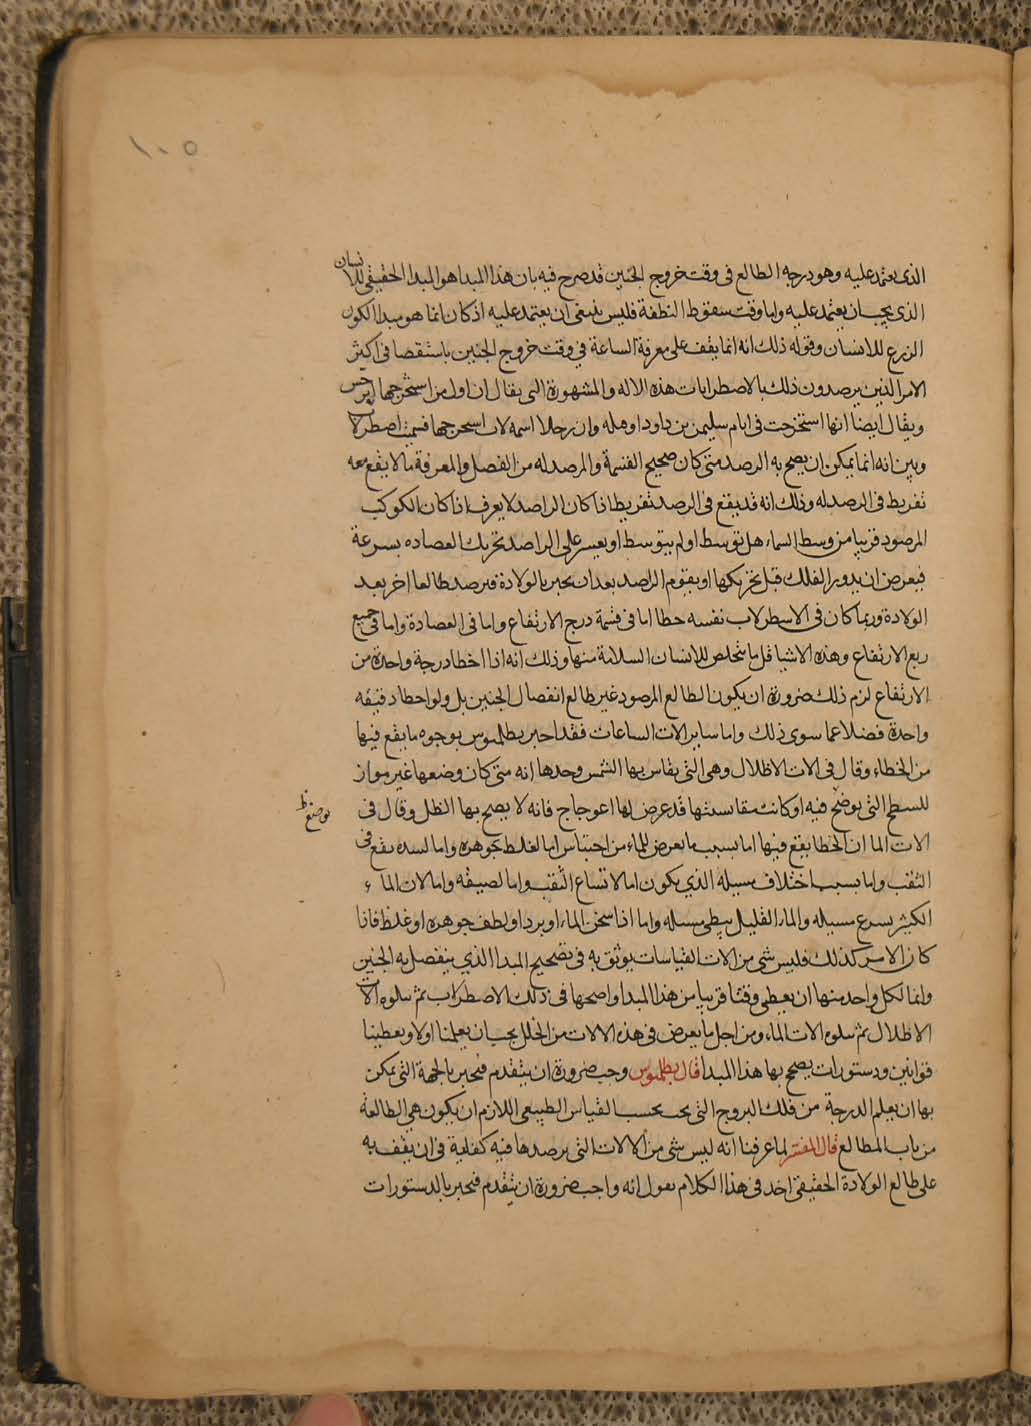 ١٠٥
الذى يعتمد عليه وهو درجه الطالع فى وقت خروج الجنين قد صرح فيه بان هذا المبدا هو المبدا الحقيقى للانسان
الذى يجب ان يعتمد عليه واما وقت سقوط النطفة فليس ينبغى ان يعتمد عليه اذ كان انما هو مبدا الكون
الزرع للانسان وقوله ذلك انه انما يقف على معرفة الساعة في وقت خروج الجنين باستقصا فى اكثر
الامر الذين يرصدون ذلك بالاصطرلابات هذه الاله والمشهورة التى يقال ان اول من استخرجها ابرخس
ويقال ايضا انها استخرجت فى ايام سليمن بن داود اوهله وان رجلا اسمه لاب استخرجها فسميت اصطرلاب
وبين انه انما يمكن ان يصح به الرصد متى كان صحيح القسمة والمرصد له من الفصل والمعرفة ما لا يقع معه
تفريط فى الرصد له وذلك انه قد يقع فى الرصد تفريط اذا كان الراصد لا يعرف اذا كان الكوكب
المرصود قريبا من وسط السماء هل توسط او لم يتوسط او يعسر على الراصد تحريك العصاده بسرعة
فيعرض ان يدور الفلك قبل تحريكها او يقوم الراصد بعد ان يخبر بالولادة فيرصد طالعا اخر بعد
الولادة وربما كان فى الاسطرلاب نفسه خطا اما فى قسمة درج الارتفاع واما فى العصادة واما فى جميع
ربع الارتفاع وهذه الاشيا قل ما تتخلص للانسان السلامة منها وذلك انه اذا اخطا درجة واحدة من
الارتفاع لزم ذلك ضرورة ان يكون الطالع المرصود غير طالع انفصال الجنين بل ولو اخطا دقيقه
واحدة فضلا عما سوى ذلك واما ساير الات الساعات فقد اخبر بطلميوس بوجوه ما يقع فيها
من الخطاء وقال فى الات الاظلال وهى التى يقاس بها الشمس وحدها انه متى كان وضعها غير مواز
للسطح التى يوضح فيه او كانت مقاستها قد عرض لها اعوجاج فانه لا يصح بها الظل وقال فى
يوضع ظ
الات الما ان الخطا يقع فيها اما بسبب ما يعرض للماء من احتباس اما لغلط جوهره واما لسده يقع فى
الثقب واما بسبب اختلاف مسيله الذي يكون اما لاتساع الثقب واما لضيقه واما لان الماء
الكثير يسرع مسيله والماء القليل يبطى مسيله واما اذا سخن الماء او برد او لطف جوهره او غلظ فاذا
كان الامر كذلك فليس شى من الات القياسات يوثق به فى تصحيح المبدا الذي ينفصل به الجنين
وانما لكل واحد منها ان يعطى وقتا قريبا من هذا المبدا واصحها فى ذلك الاصطرلاب ثم يتلوه الات
الاظلال ثم يتلوه الات الماء ومن اجل ما يعرض فى هذه الالات من الخلل يجب ان يعلمنا اولا ويعطينا
قوانين ودستورات يصح بها هذا المبدا قال بطلميوس وجب ضرورة ان يتقدم فيخبر بالجهة التى يمكن
بها ان يعلم الدرجة من فلك البروج التى يجب بحسب القياس الطبيعى اللازم ان يكون هي الطالعة
من باب المطالع قال المفسر لما عرفنا انه ليس شى من الالات التى يرصد بها فيه كفاية فى ان يقف به
على طالع الولادة الحقيقى اخذ فى هذا الكلام يقول انه واجب ضرورة ان يتقدم فيخبر بالدستورات